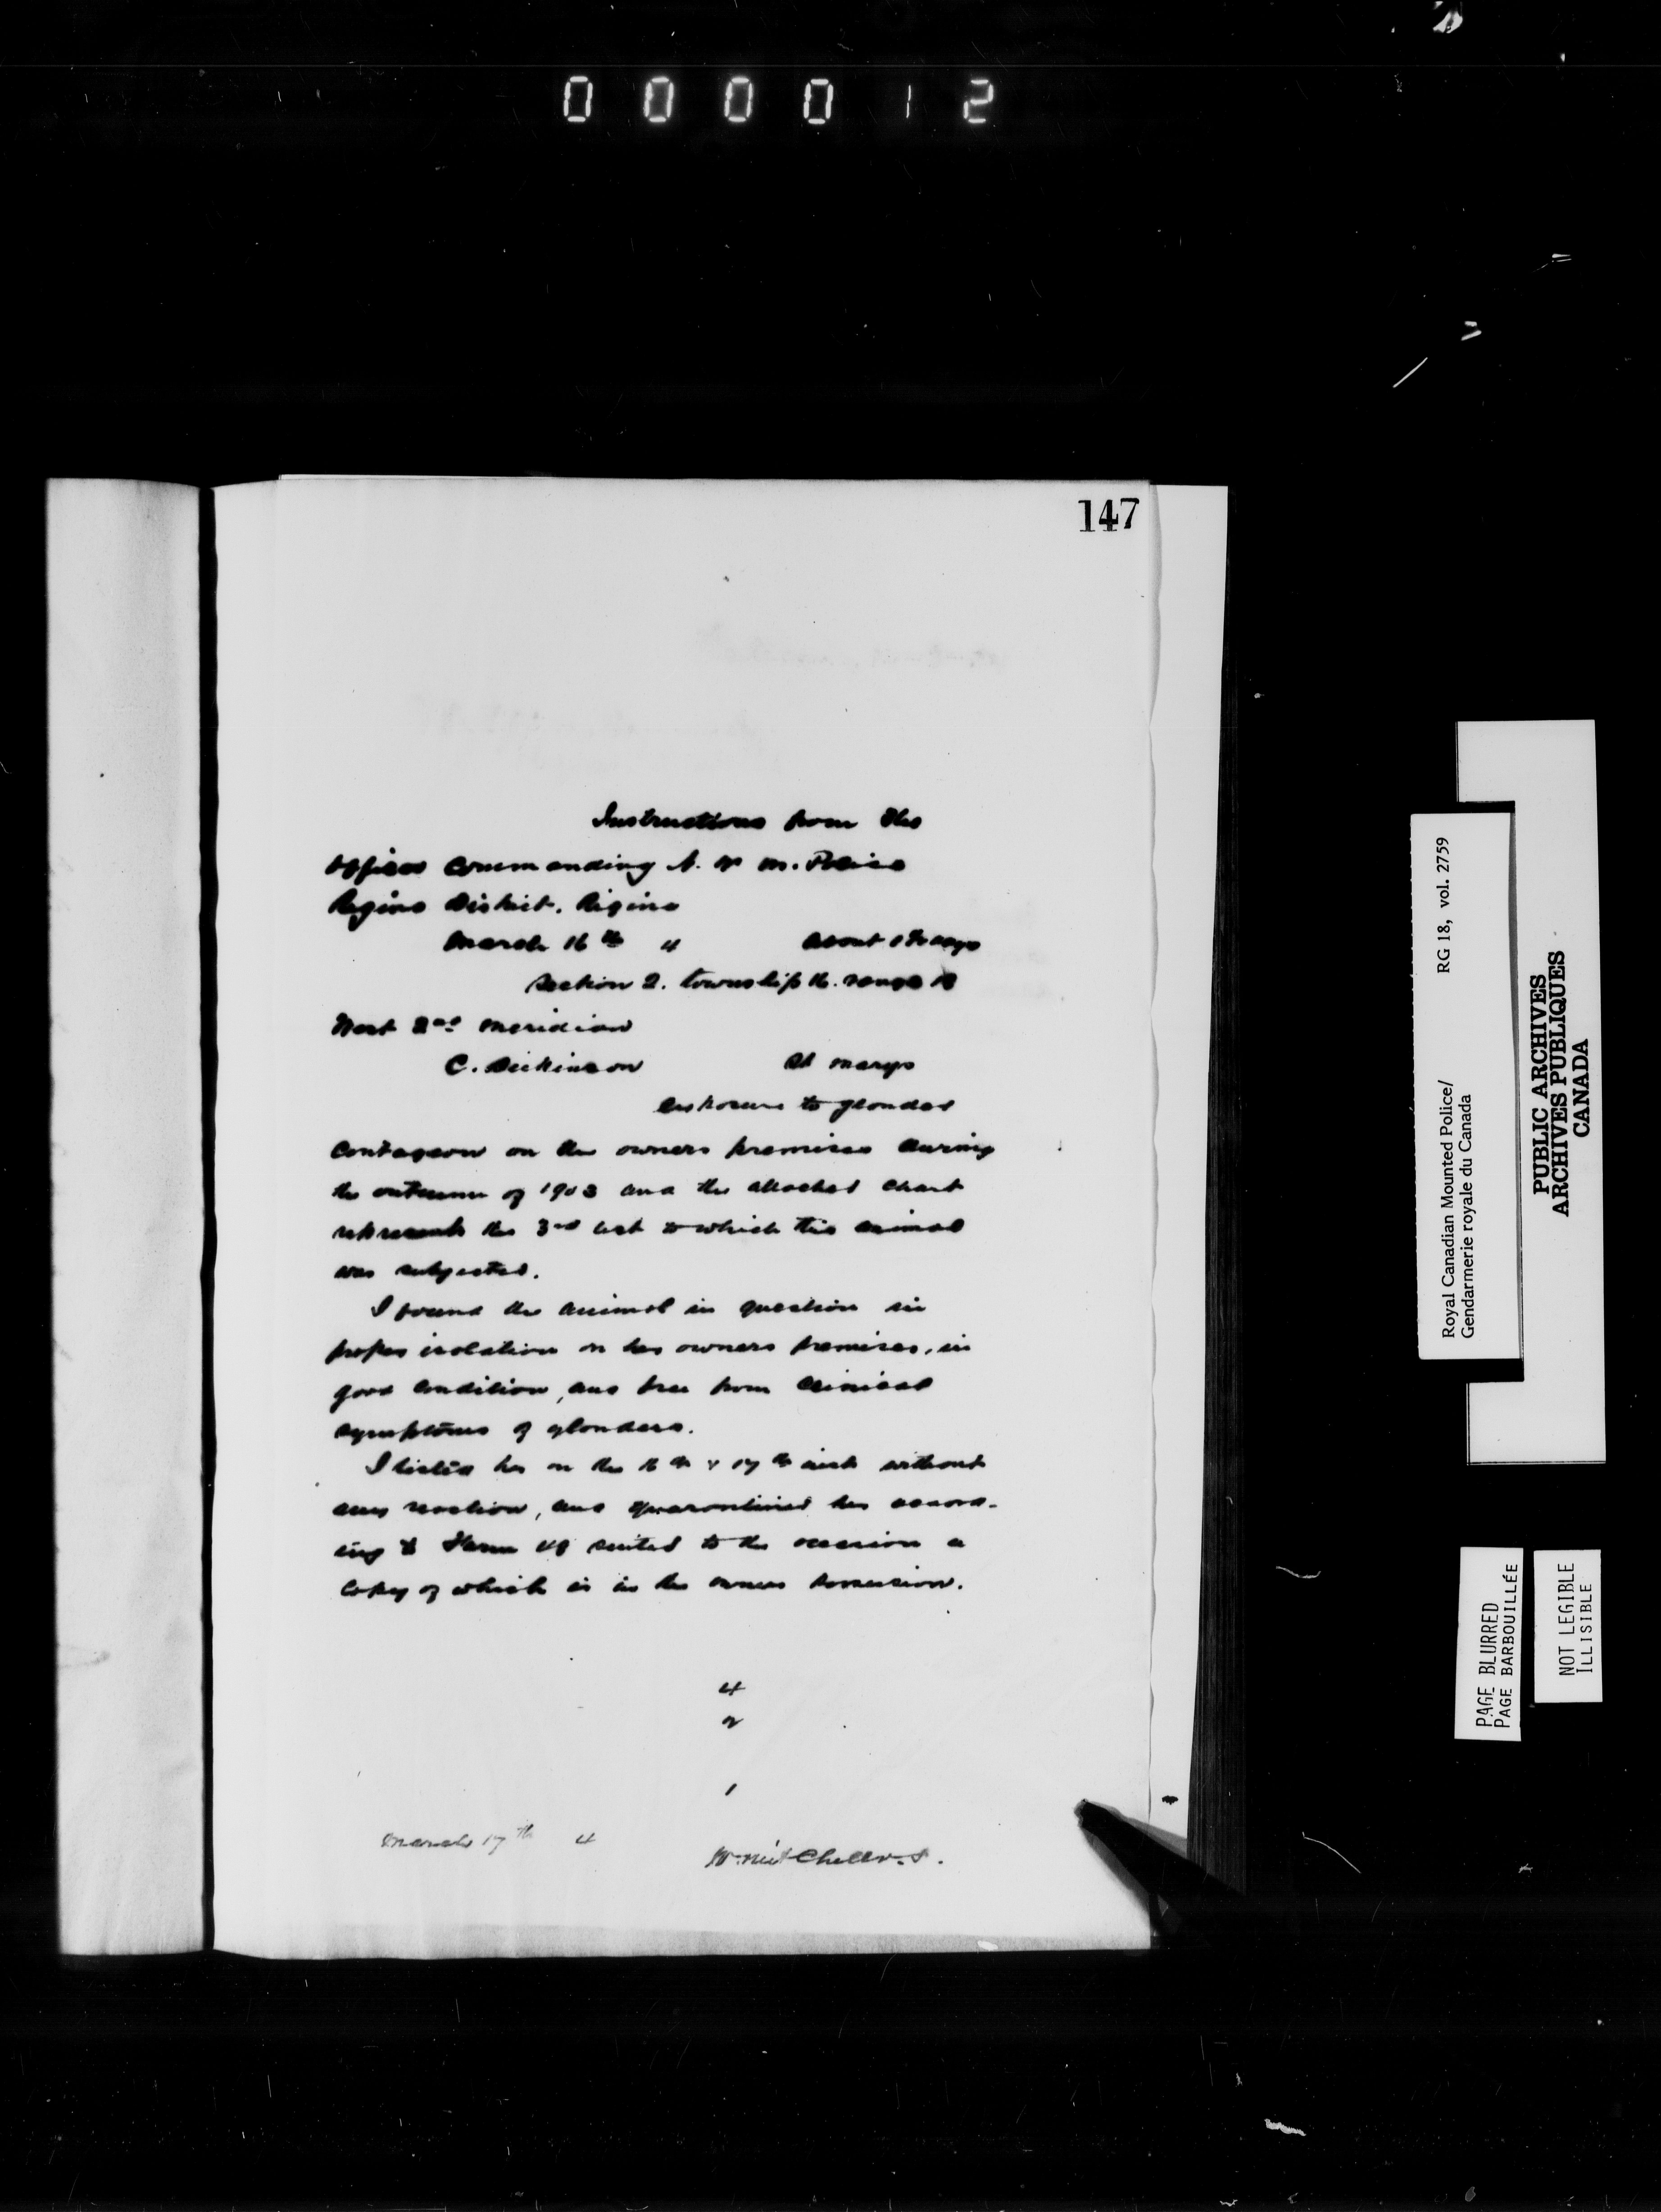 000012
147
Instructions from the
Officer Commanding N. W. M. Police
Regina District. Regina
March 16th 4 About 1 30
Section 2. township 16. range 18
West 2nd Meridian
C. Dickinson St Marys
exposure to glander
contageon on the owners premises during
the autumn of 1903 and the attached chart
represents the 3rd test to which this animal
was subjected.
I found the animal in question in
proper isolation on her owners premises, in
good condition, and free from clinical
symptoms of glanders.
I tested her on the 16th & 17th inst without
any reaction, and quarantined her accord-
ing to Form suited to the occasion a
copy of which is in the owners possession.
4
2
1
March 17th 4
W. Mitchell V.S.
Royal Canadian Mounted Police/ RG 18, vol. 2759
Gendarmerie royale du Canada
PUBLIC ARCHIVES
ARCHIVES PUBLIQUES
CANADA
PAGE BLURRED
PAGE BARBOUILLÉE
NOT LEGIBLE
ILLISIBLE